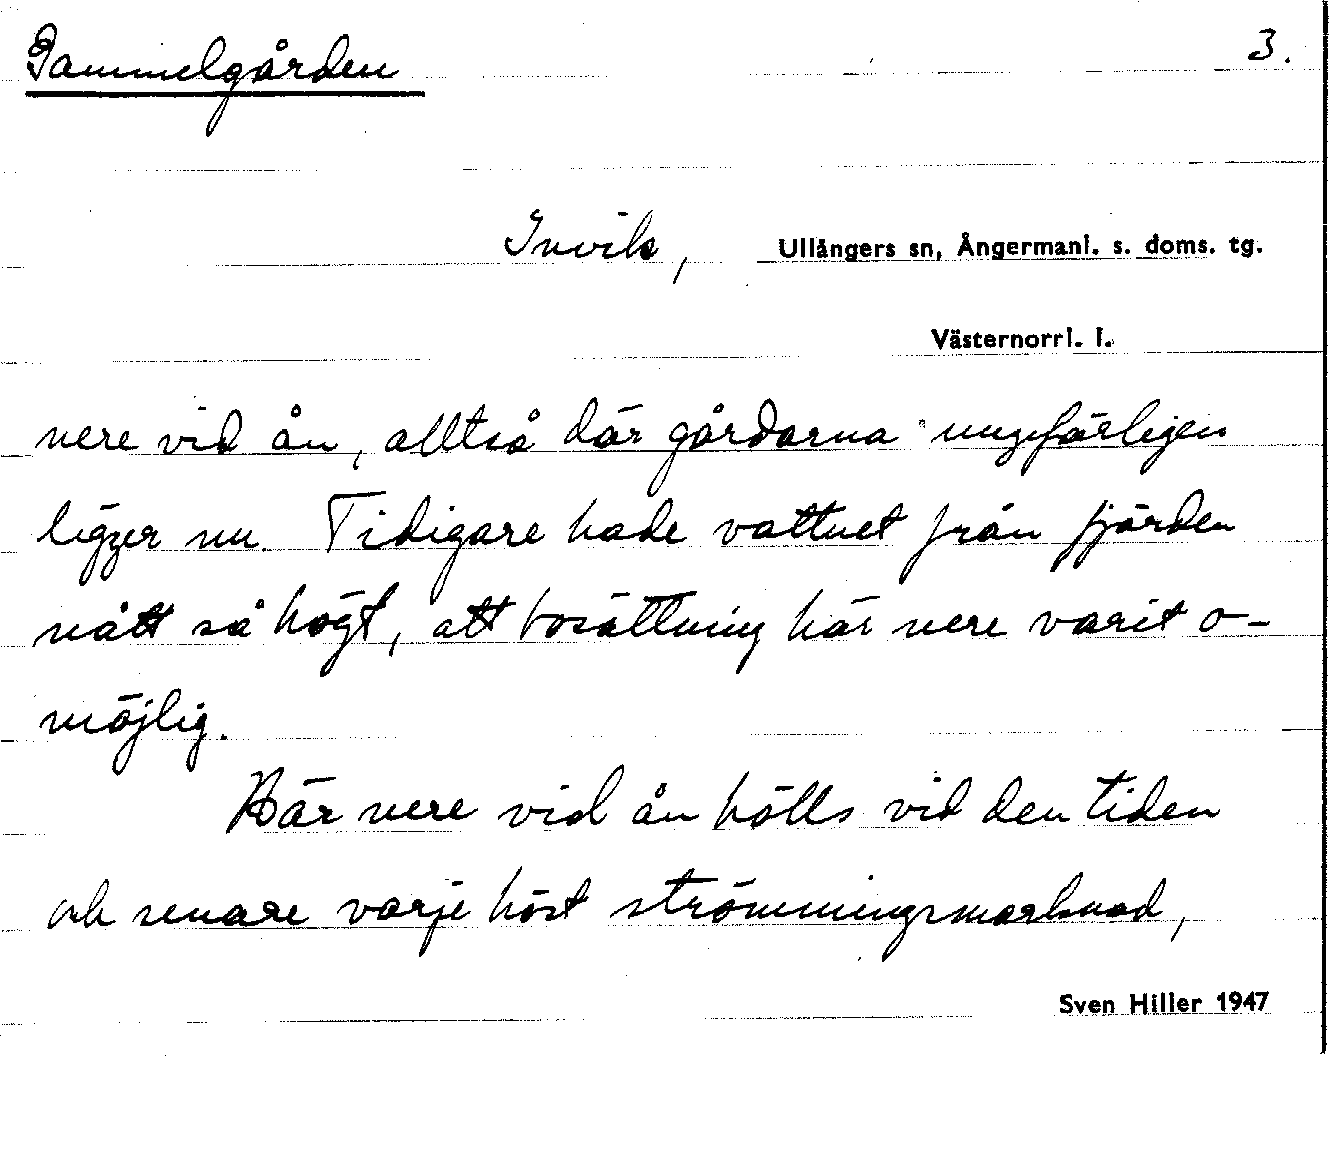 Gammelgården 3.
Invik, Ullångers sn, Ångermanl. s. doms. tg.
Västernorrl. l.
nere vid ån, alltså där gårdarna ungefärligen
ligger nu. Tidigare hade vattnet från fjärden
nått så högt, att bosättning här nere varit o-
möjlig.
Här nere vid ån hölls vid den tiden
och senare varje höst strömmingsmarknad,
Sven Hiller 1947